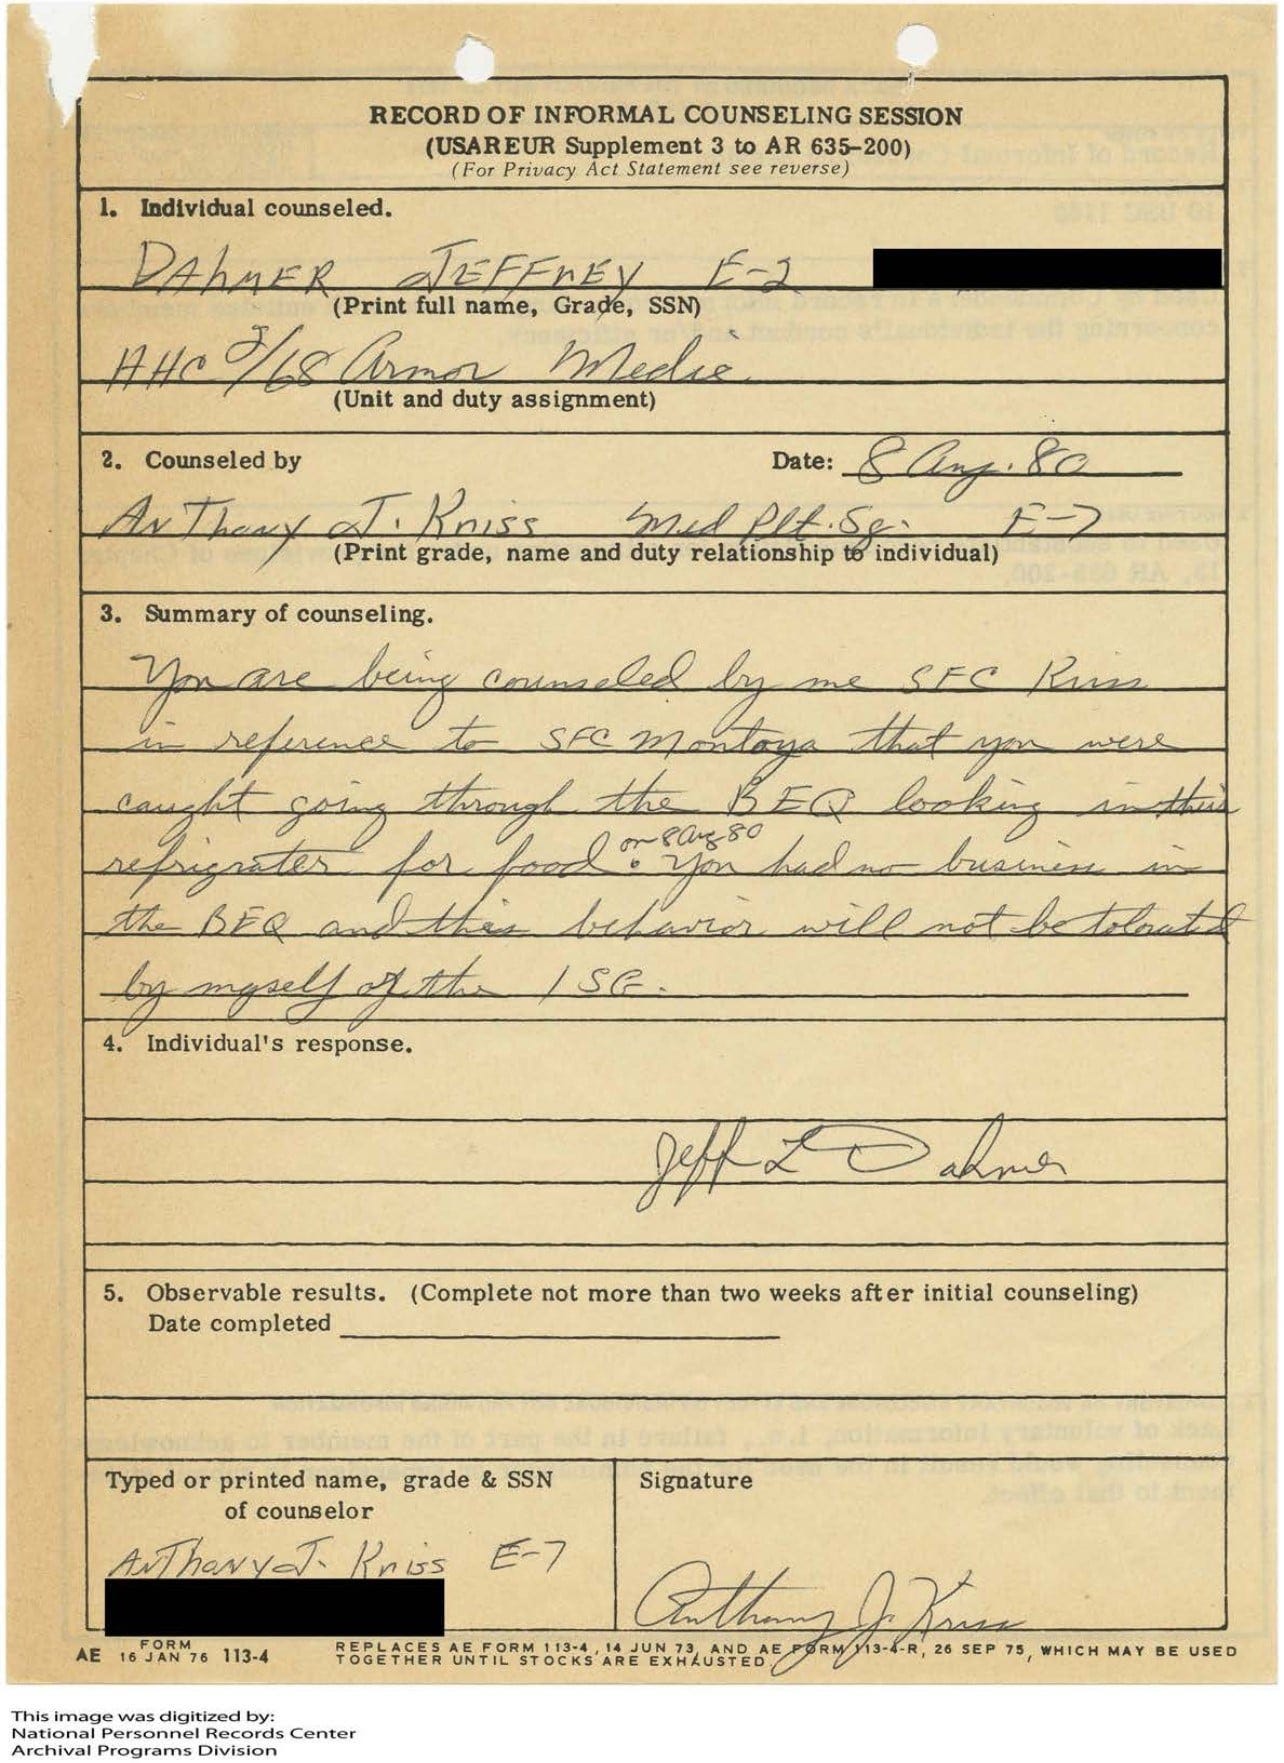 RECORD OF INFORMAL COUNSELING SESSION
(USAREUR Supplement 3 to AR 635-200)
(For Privacy Act Statement see reverse)
1. Individual counseled.
DAHMER JEFFREY E-2
(Print full name, Grade, SSN)
HHC 2/68 Armor Medic
(Unit and duty assignment)
2. Counseled by Date: 8 Aug. 80
AnThony J. Kriss Med Plt. Sg. E-7
(Print grade, name and duty relationship to individual)
3. Summary of counseling.
You are being counseled by me SFC Kriss
in reference to SFC Montoya that you were
caught going through the BEQ looking in their
on 8 Aug 80
refrigrater for food. You had no business in
the BEQ and this behavior will not be tolorated
by myself of the 1SG.
4. Individual's response.
Jeff L Dahmer
5. Observable results. (Complete not more than two weeks after initial counseling)
Date completed
Typed or printed name, grade & SSN
of counselor
Signature
AnThony J. Kriss E-7
Anthony J. Kriss
AE FORM 16 JAN 76 113-4
REPLACES AE FORM 113-4, 14 JUN 73, AND AE FORM 113-4-R, 26 SEP 75, WHICH MAY BE USED
TOGETHER UNTIL STOCKS ARE EXHAUSTED.
This image was digitized by:
National Personnel Records Center
Archival Programs Division